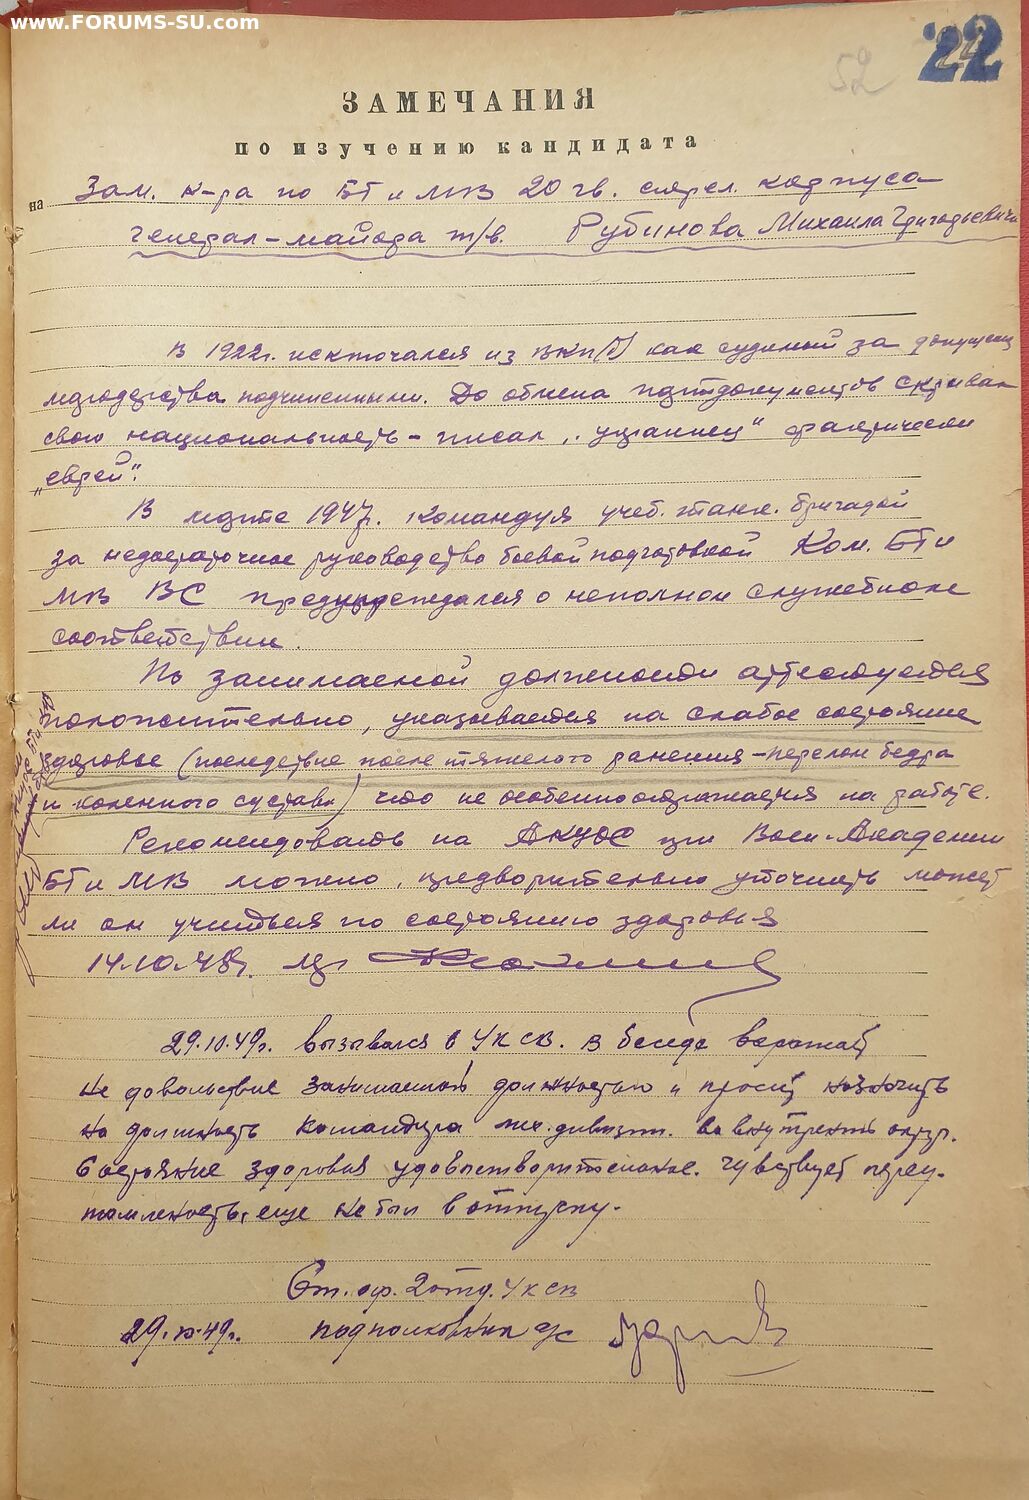 www.FORUMS-SU.com
22
52
ЗАМЕЧАНИЯ
по изучению кандидата
на Зам. к-ра по БТ и МВ 20 гв. стрел. корпуса
генерал-майора т/в. Рубинова Михаила Григорьевича
В 1922г. исключался из ВКП(б) как судимый за допущен.
мародерства подчиненными. До обмена партдокументов скрывал
свою национальность - писал „украинец" фактически
„еврей".
В марте 1947г. командуя учеб. танк. бригадой
за недостаточное руководство боевой подготовкой Ком. БТ и
МВ ВС предупреждался о неполном служебном
соответствии.
По занимаемой должности аттестуется
положительно, указывается на слабое состояние
здоровье (последствие после тяжелого ранения - перелом бедра
и коленного сустава) что не особенно отражается на работе.
Рекомендовать на АКУОС при Воен-Академии
БТ и МВ можно, предварительно уточнить может
ли он учиться по состоянию здоровья
14.10.48г.
29.10.49г. вызывался в УК СВ. В беседе выражал
не довольствие занимаемой должностью и просил назначить
на должность командира мех. дивизии. во внутренний округ.
Состояние здоровья удовлетворительное. Чувствует переу-
томленность, еще не был в отпуску.
Ст. оф. 2 отд. УК СВ
29.10.49г. подполковник